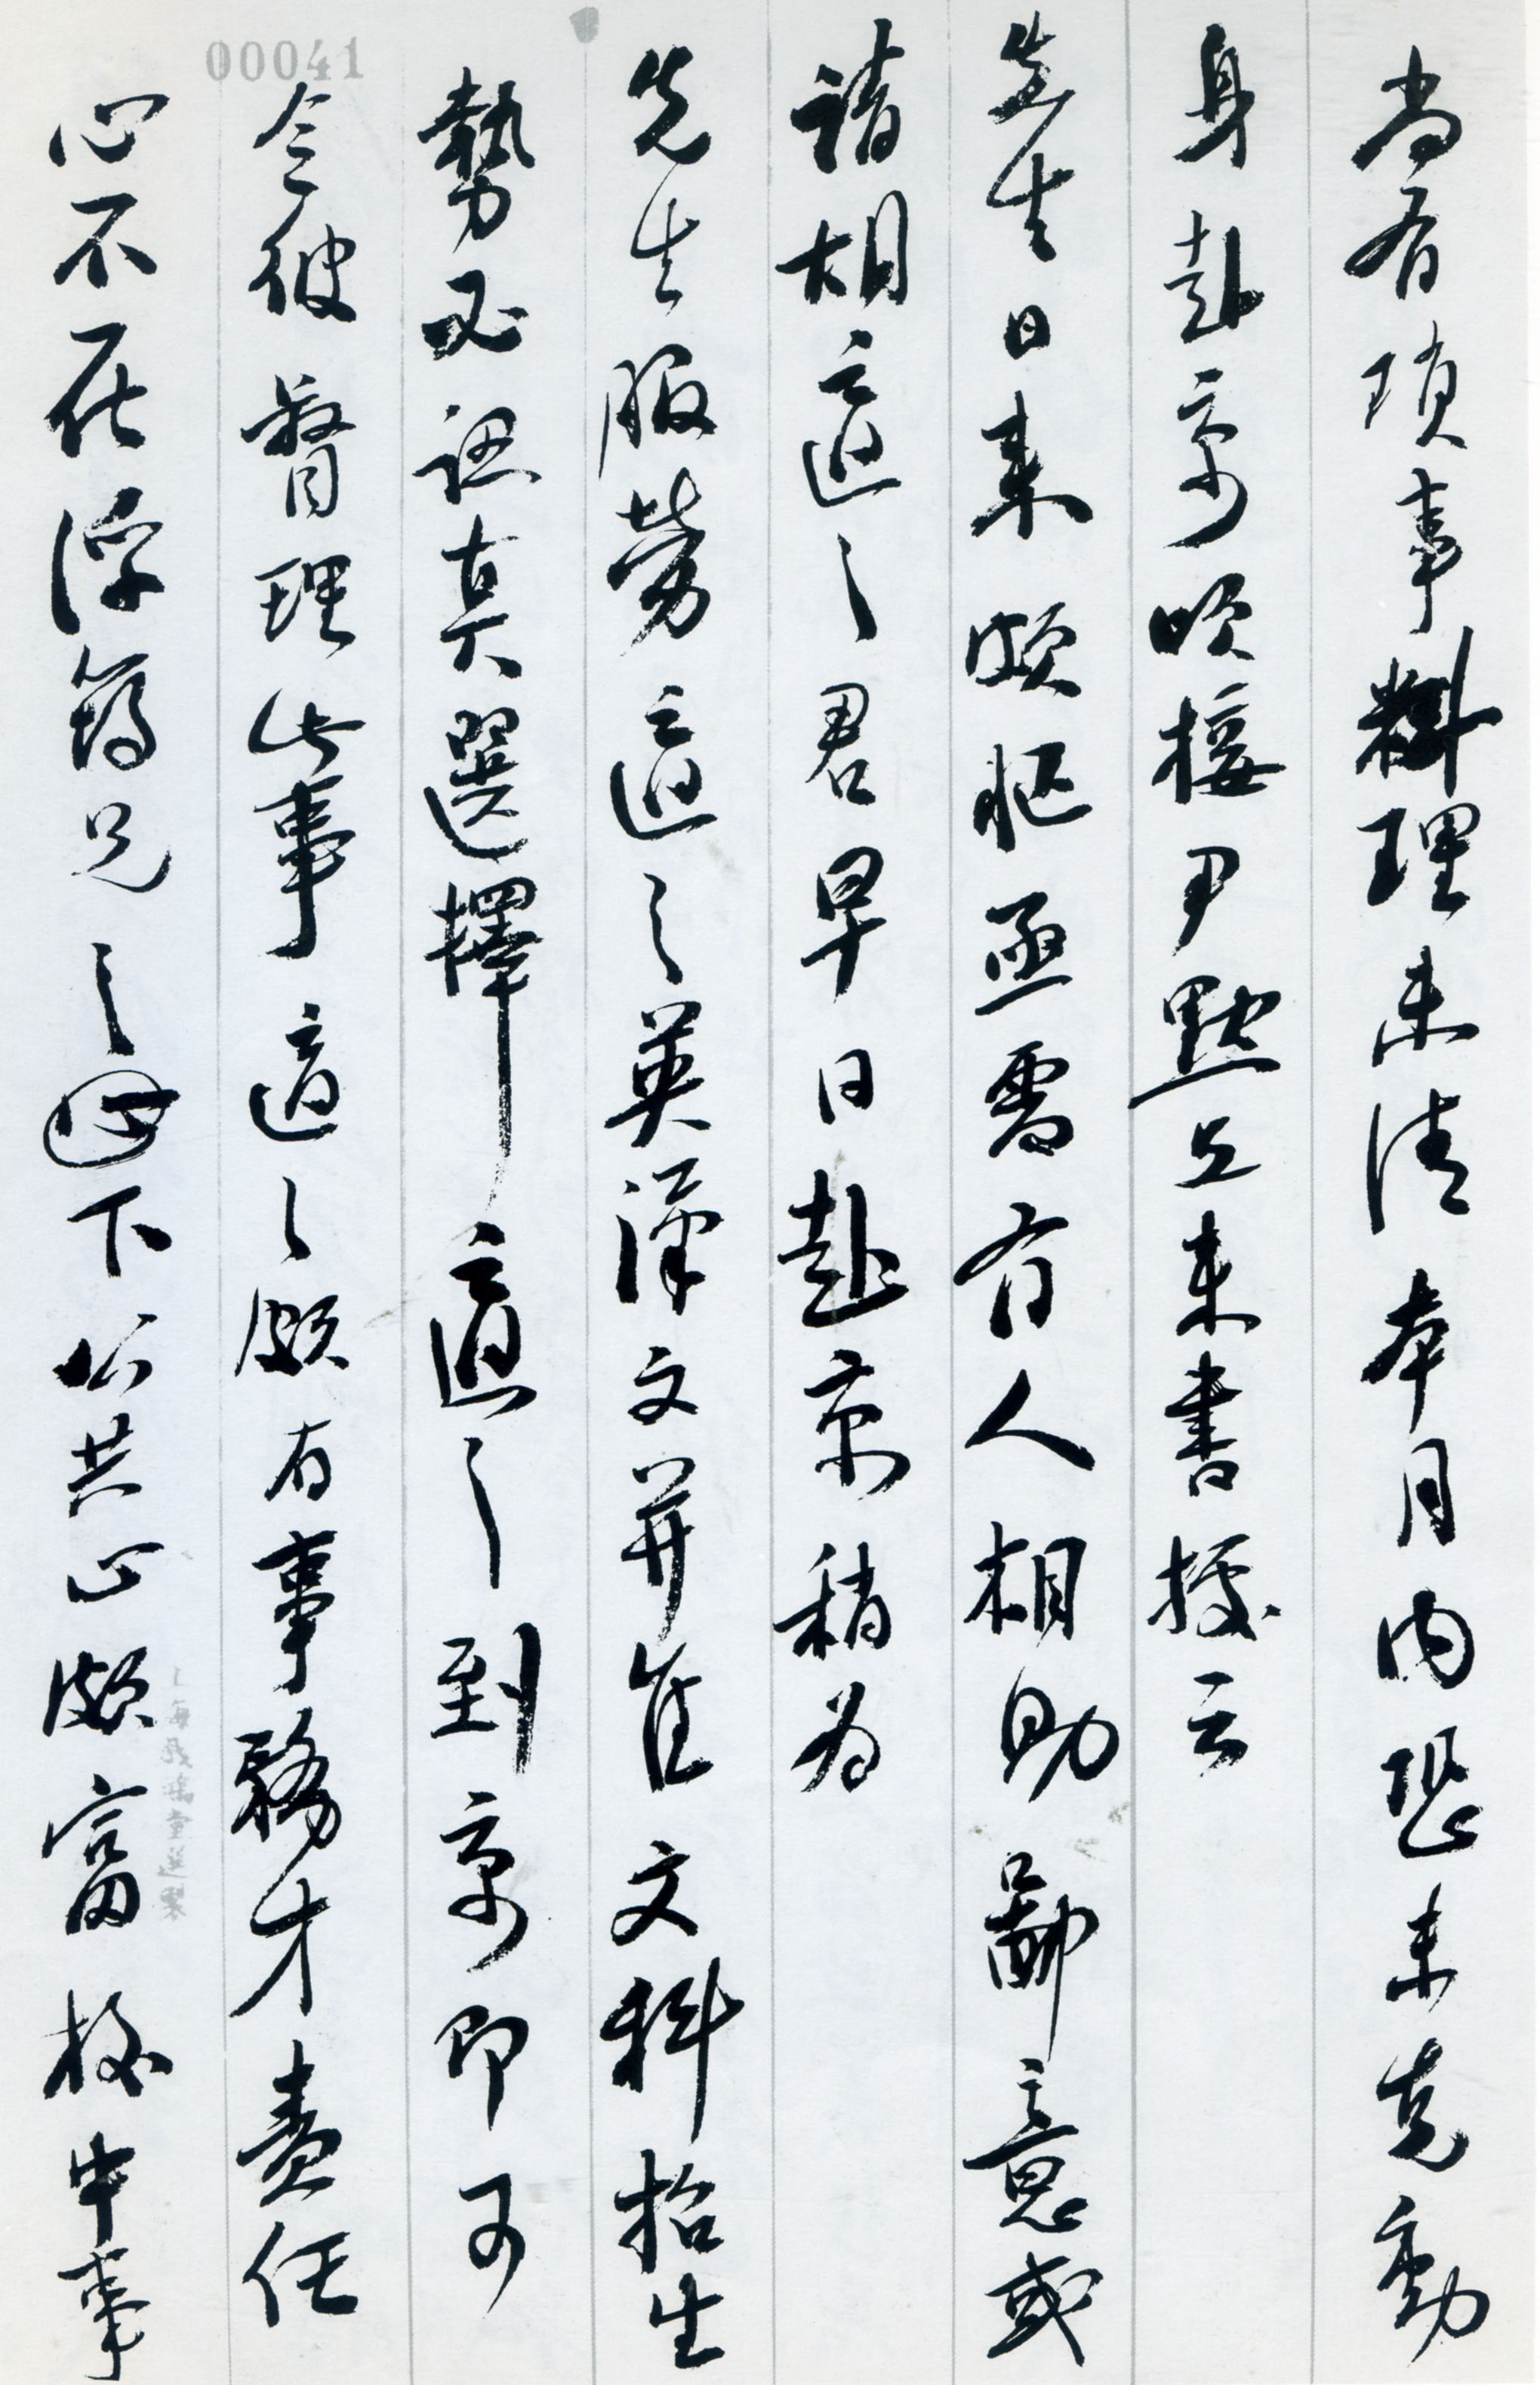 尚有琐事料理未清本月内恐未克動
身赴京頃接尹默上来書援云
先生日来頗極亟需有人相助鄙意或
請胡適之君早日赴京稍为
先生服勞適之英漢文并佳文科招生
勢必認真選擇適之到京即可
令彼督理此事適之頗有事務才責任
心不在浮筠兄之下公共心頗富校中事
00041